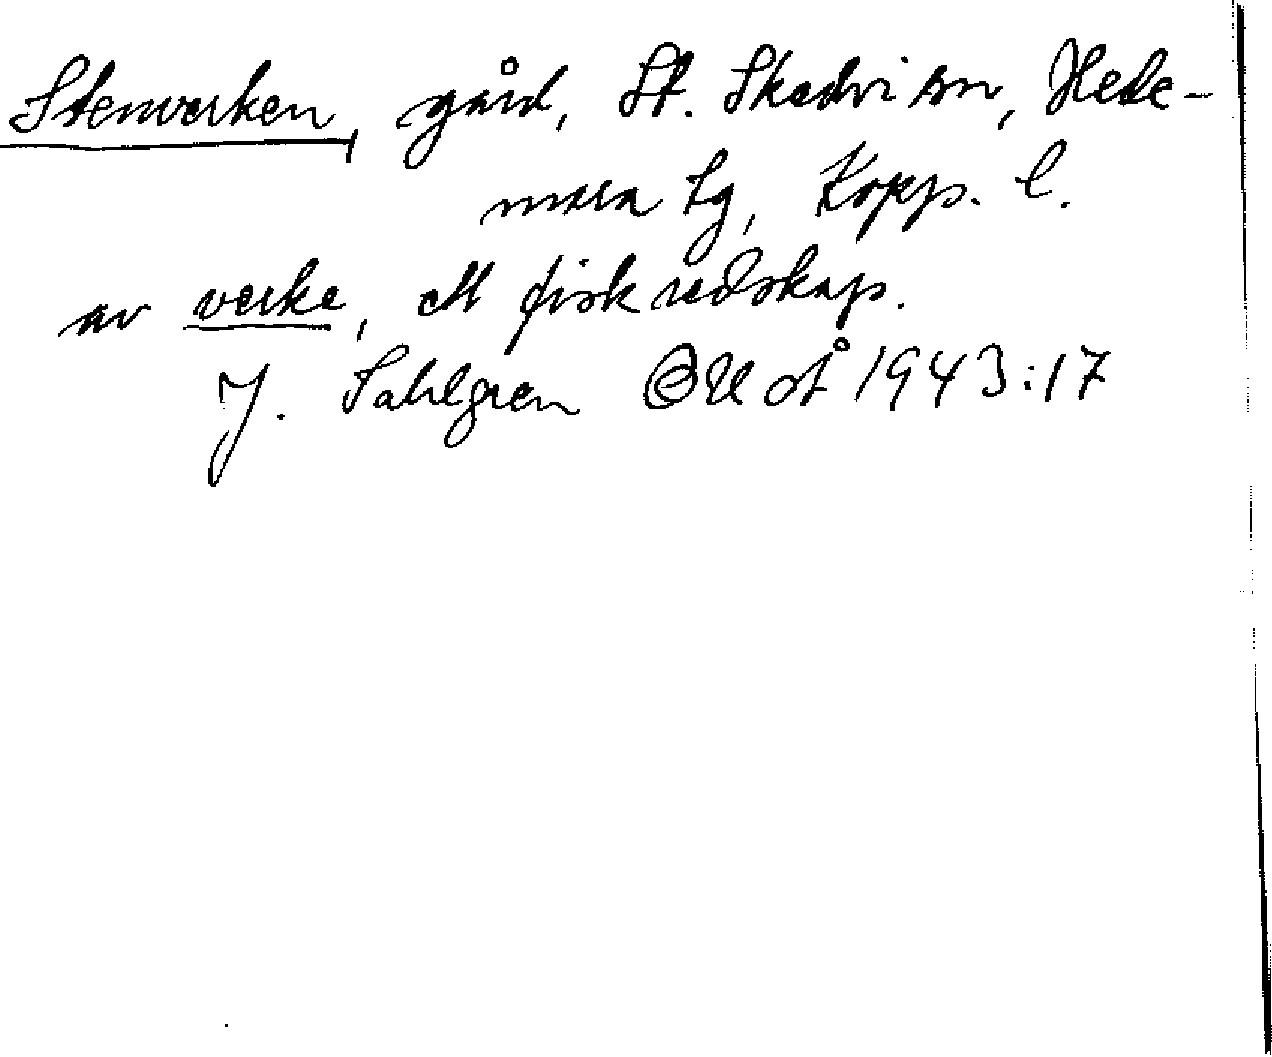 Stenverken, gård, St. Skedvi sn, Hede-
mora tg, Kopp. l.
av verke, ett fiskredskap.
J. Sahlgren OUoÅ 1943:17